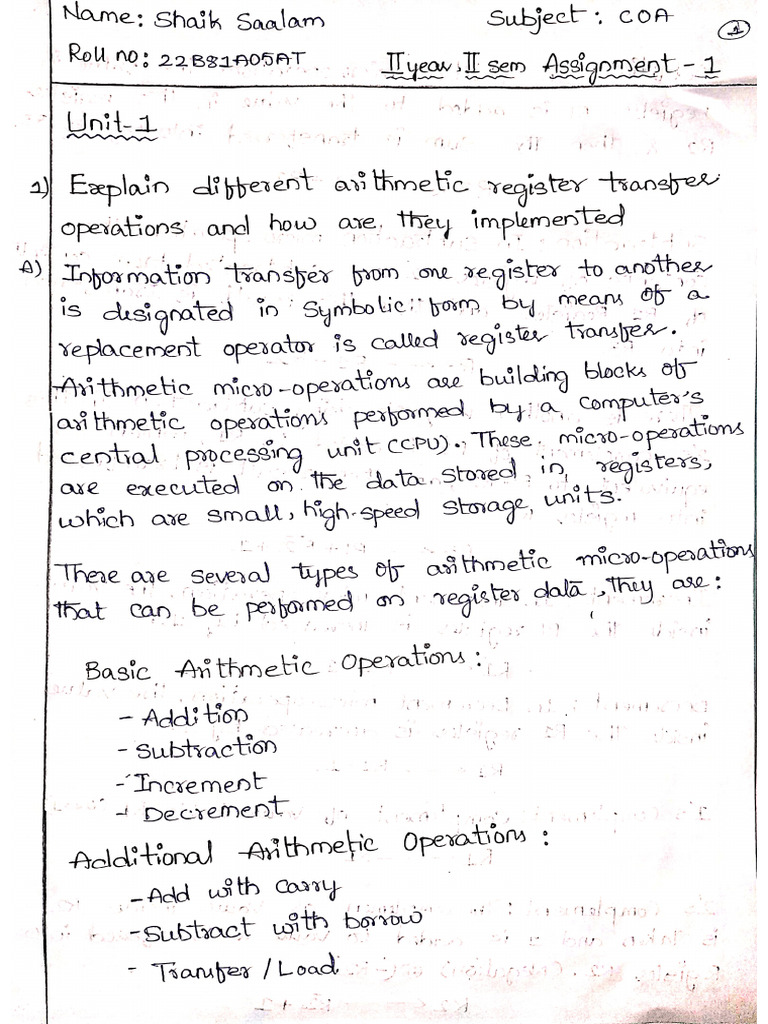 Name: Shaik Saalam Subject: COA 1
Roll no: 22B81A05AT. II year, II sem Assignment - 1
Unit-1
1) Explain different arithmetic register transfer
operations and how are they implemented
A) Information transfer from one register to another
is designated in Symbolic form by means of a
replacement operator is called register transfer.
Arithmetic micro-operations are building blocks of
arithmetic operations performed by a computer's
central processing unit (CPU). These micro-operations
are executed on the data stored in registers,
which are small, high-speed storage units.
There are several types of arithmetic micro-operations
that can be performed on register data, They are:
Basic Arithmetic Operations:
- Addition
- Subtraction
- Increment
- Decrement
Additional Arithmetic Operations:
- Add with carry
- Subtract with borrow
- Transfer / Load